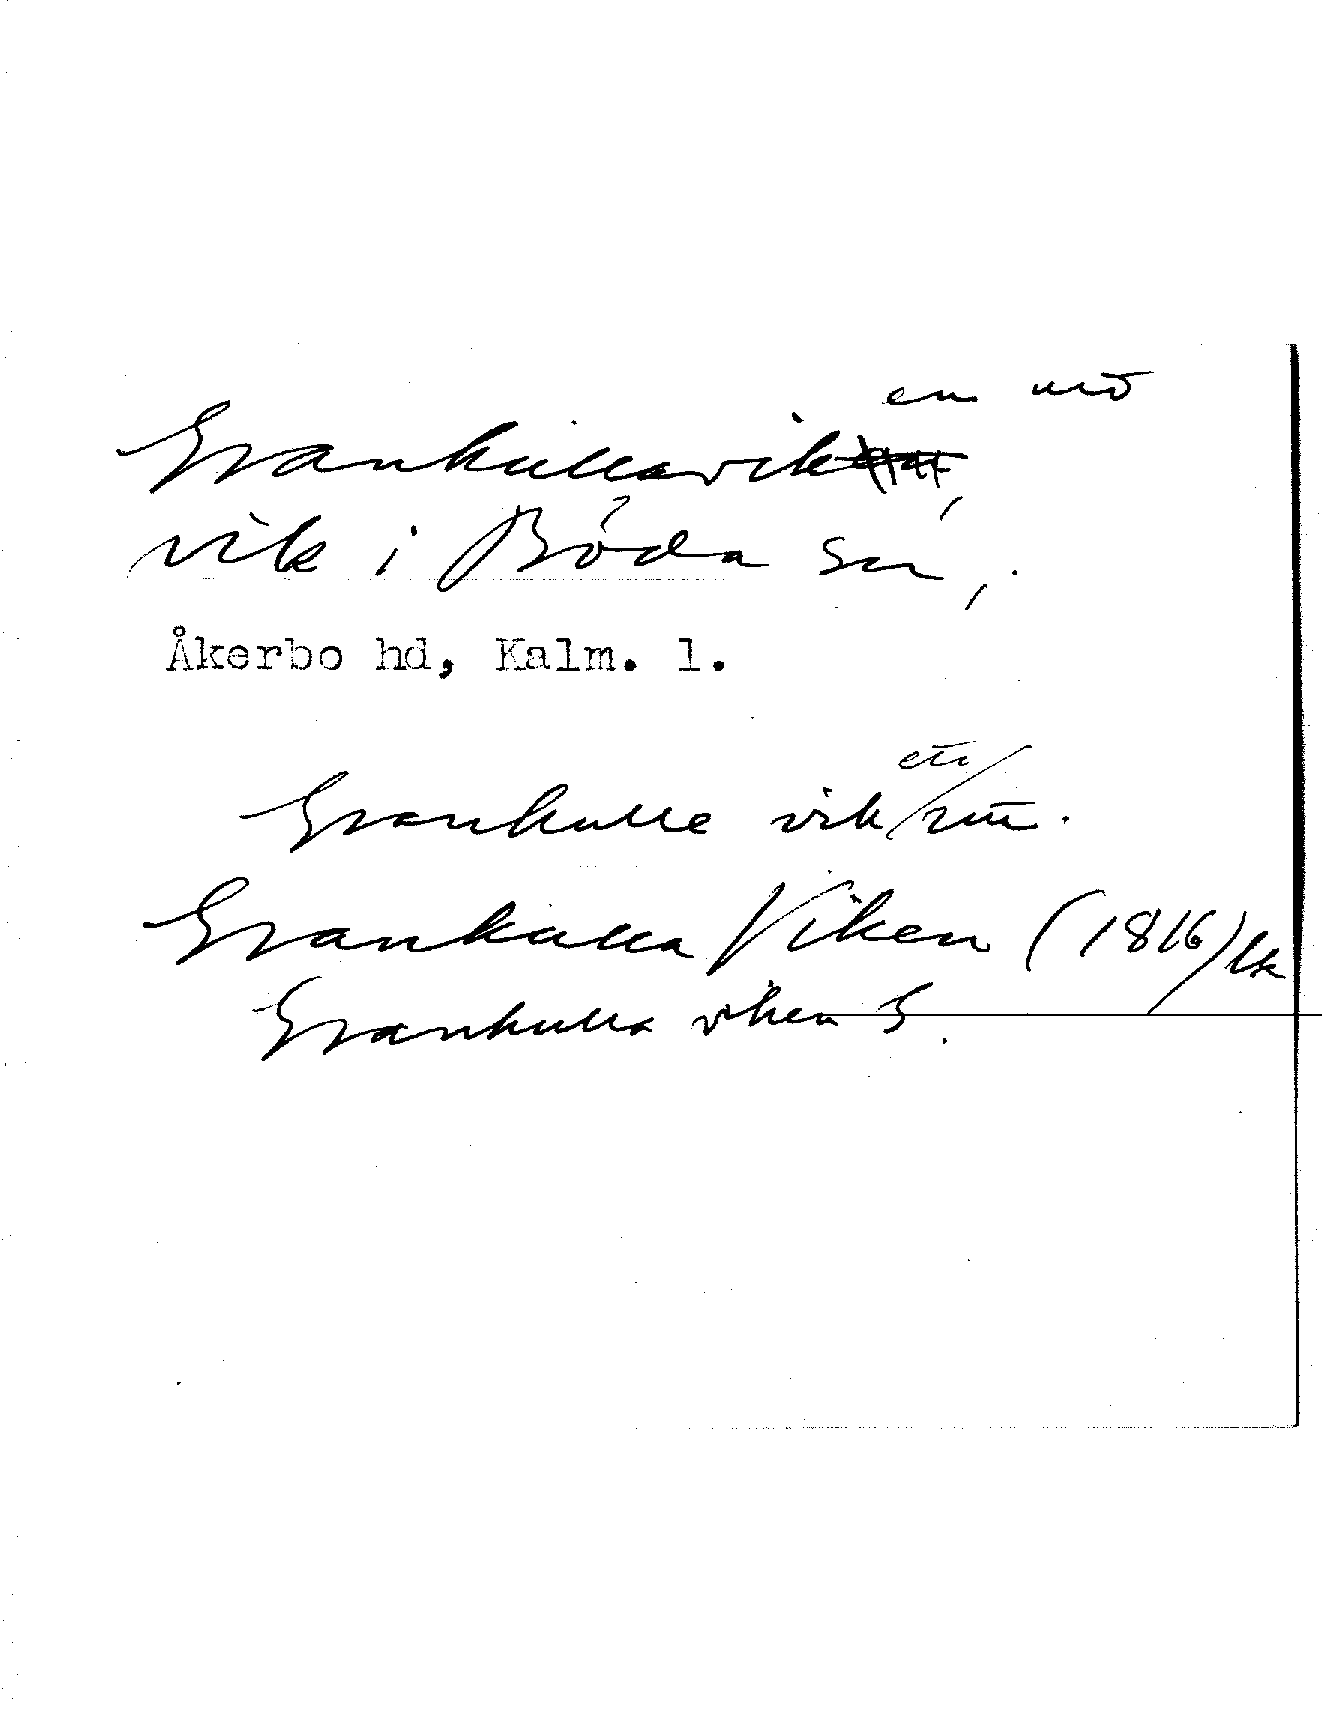 en
Grankullavik
vik i Böda sn,
Åkerbo hd, Kalm. l.
etc
Grankulle vik
Grankulla Viken (1816) lk
Grankulla viken G.